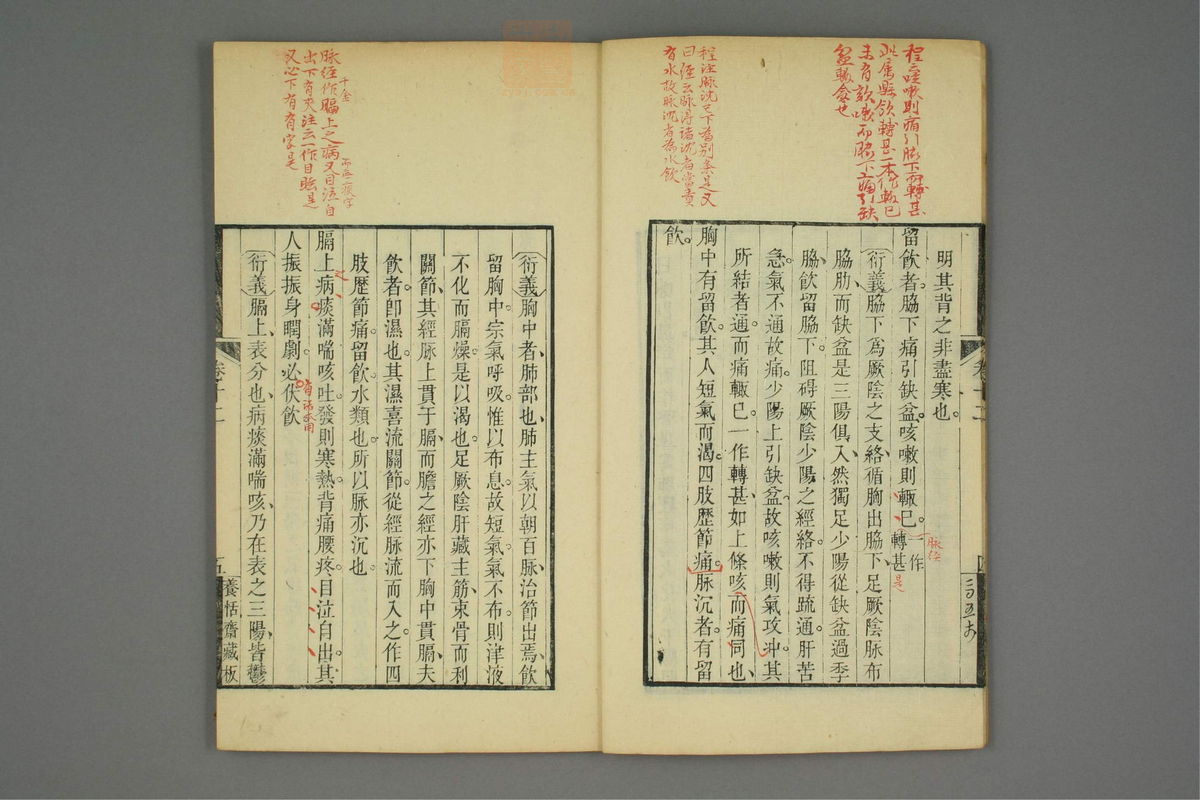 程云咳嗽則痛引脇下而轉甚
此屬懸飲轉甚一本作輒已
未有咳嗽而脇下痛引缺
盆輒愈也
程注脉沉已下爲別条是又
曰經云脉得諸沉者當責
有水故脉沉者爲水飲
明其背之非盡寒也
留飲者脇下痛引缺盆咳嗽則輒已一作轉甚
脉經
是
衍義脇下爲厥陰之支絡循胸出脇下足厥陰脉布
脇肋而缺盆是三陽俱入然獨足少陽從缺盆過季
脇飲留脇下阻碍厥陰少陽之經絡不得疏通肝苦
急氣不通故痛少陽上引缺盆故咳嗽則氣攻沖其
所結者通而痛輒已一作轉甚如上條咳而痛同也
胸中有留飲其人短氣而渴四肢歷節痛脉沉者有留
飲
卷十二
脉經作膈上之病又目泣自
千金
出下有夾注云一作目眩是
又必下有有字是
衍義胸中者肺部也肺主氣以朝百脉治節出焉飲
留胸中宗氣呼吸惟以布息故短氣氣不布則津液
不化而膈燥是以渴也足厥陰肝藏主筋束骨而利
關節其經脉上貫于膈而膽之經亦下胸中貫膈夫
飲者卽濕也其濕喜流關節從經脉流而入之作四
肢歷節痛留飲水類也所以脉亦沉也
膈上病痰滿喘咳吐發則寒熱背痛腰疼目泣自出其
之
人振振身瞤劇必伏飲
衍義膈上表分也病痰滿喘咳乃在表之三陽皆鬱
卷十二
五
養恬齋藏板